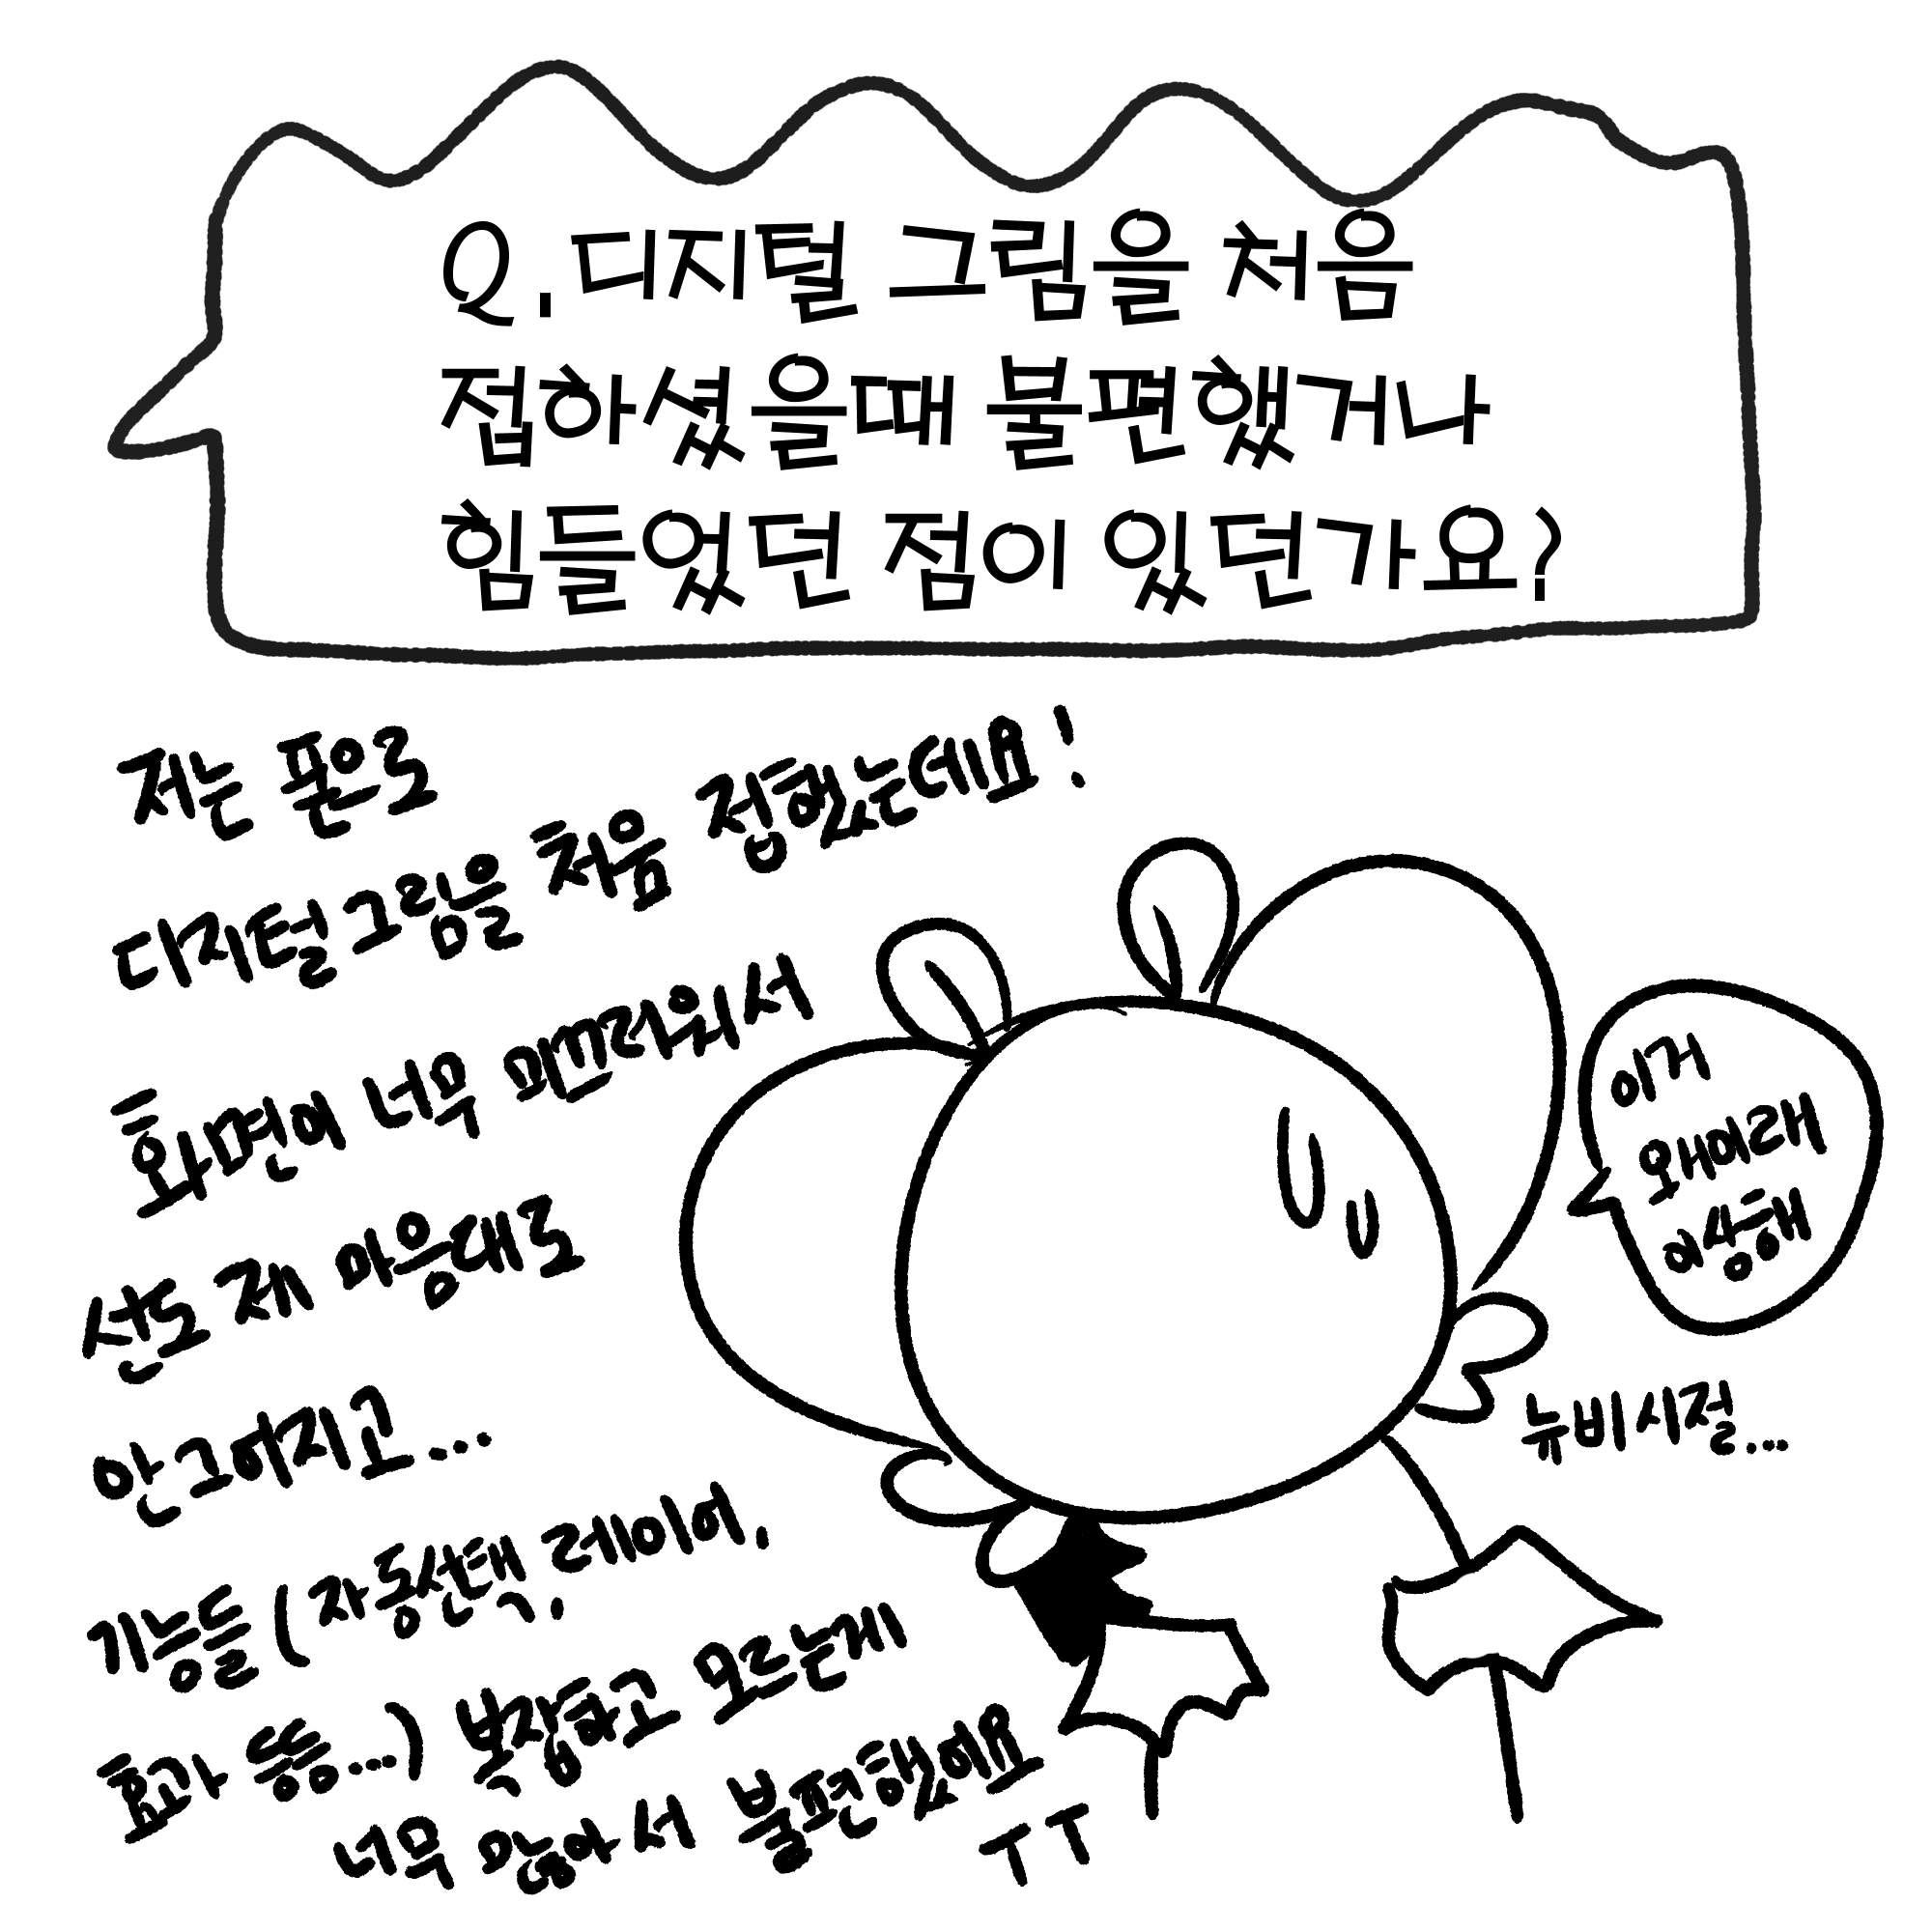 Q.디지털 그림을 처음
접하셨을때 불편했거나
힘들었던 점이 있던가요?
저는 폰으로
디지털그림을 처음 접했는데요!
화면이 너무 미끄러워서
선도 제 마음대로
안그어지고...
기능들(자동선택 레이어.
효과 등등...) 복잡하고 모르는게
너무 많아서 불편했어요
ㅜㅜ
이거
왜이래
이상해
뉴비시절...